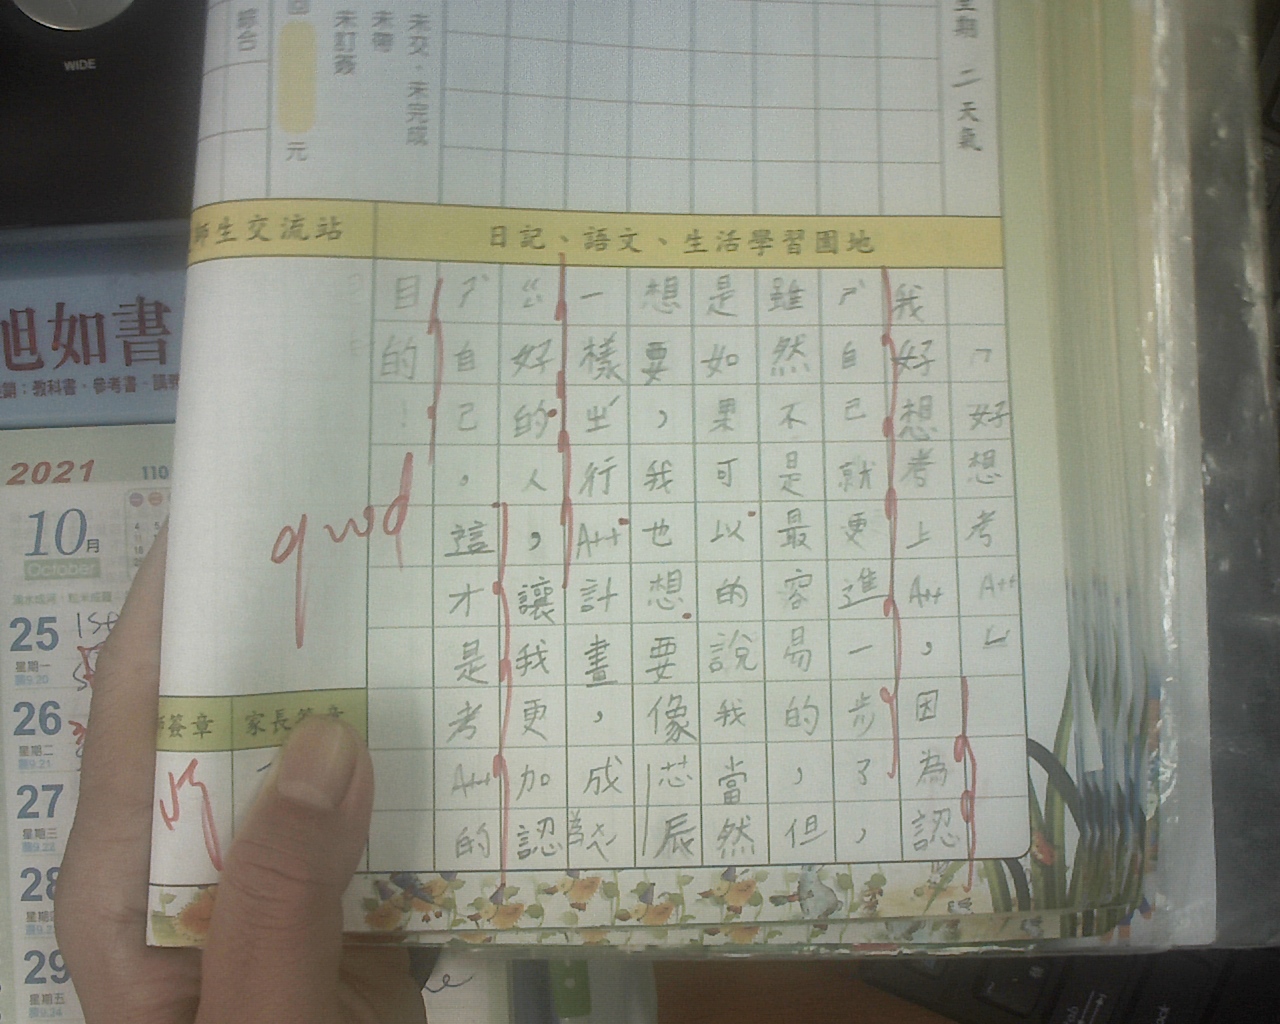 WIDE
綜合
元
未訂簽
未帶
未交、未完成
期 二 天氣
師生交流站
日記、語文、生活學習園地
「好想考A++」
我好想考上A++,因為認
ㄕˋ自己就更進一步了,
雖然不是最容易的,但
是如果可以的說我當然
想要,我也想要像芯辰
一樣ㄓˊ行A++計畫,成為
好的人,讓我更加認
ㄕˋ自己。這才是考A++的
目的!
good
簽章
家長簽章
旭如書
教科書、參考書
2021
110
10月
October
25
星期一
26
星期二
27
星期三
28
29
星期五